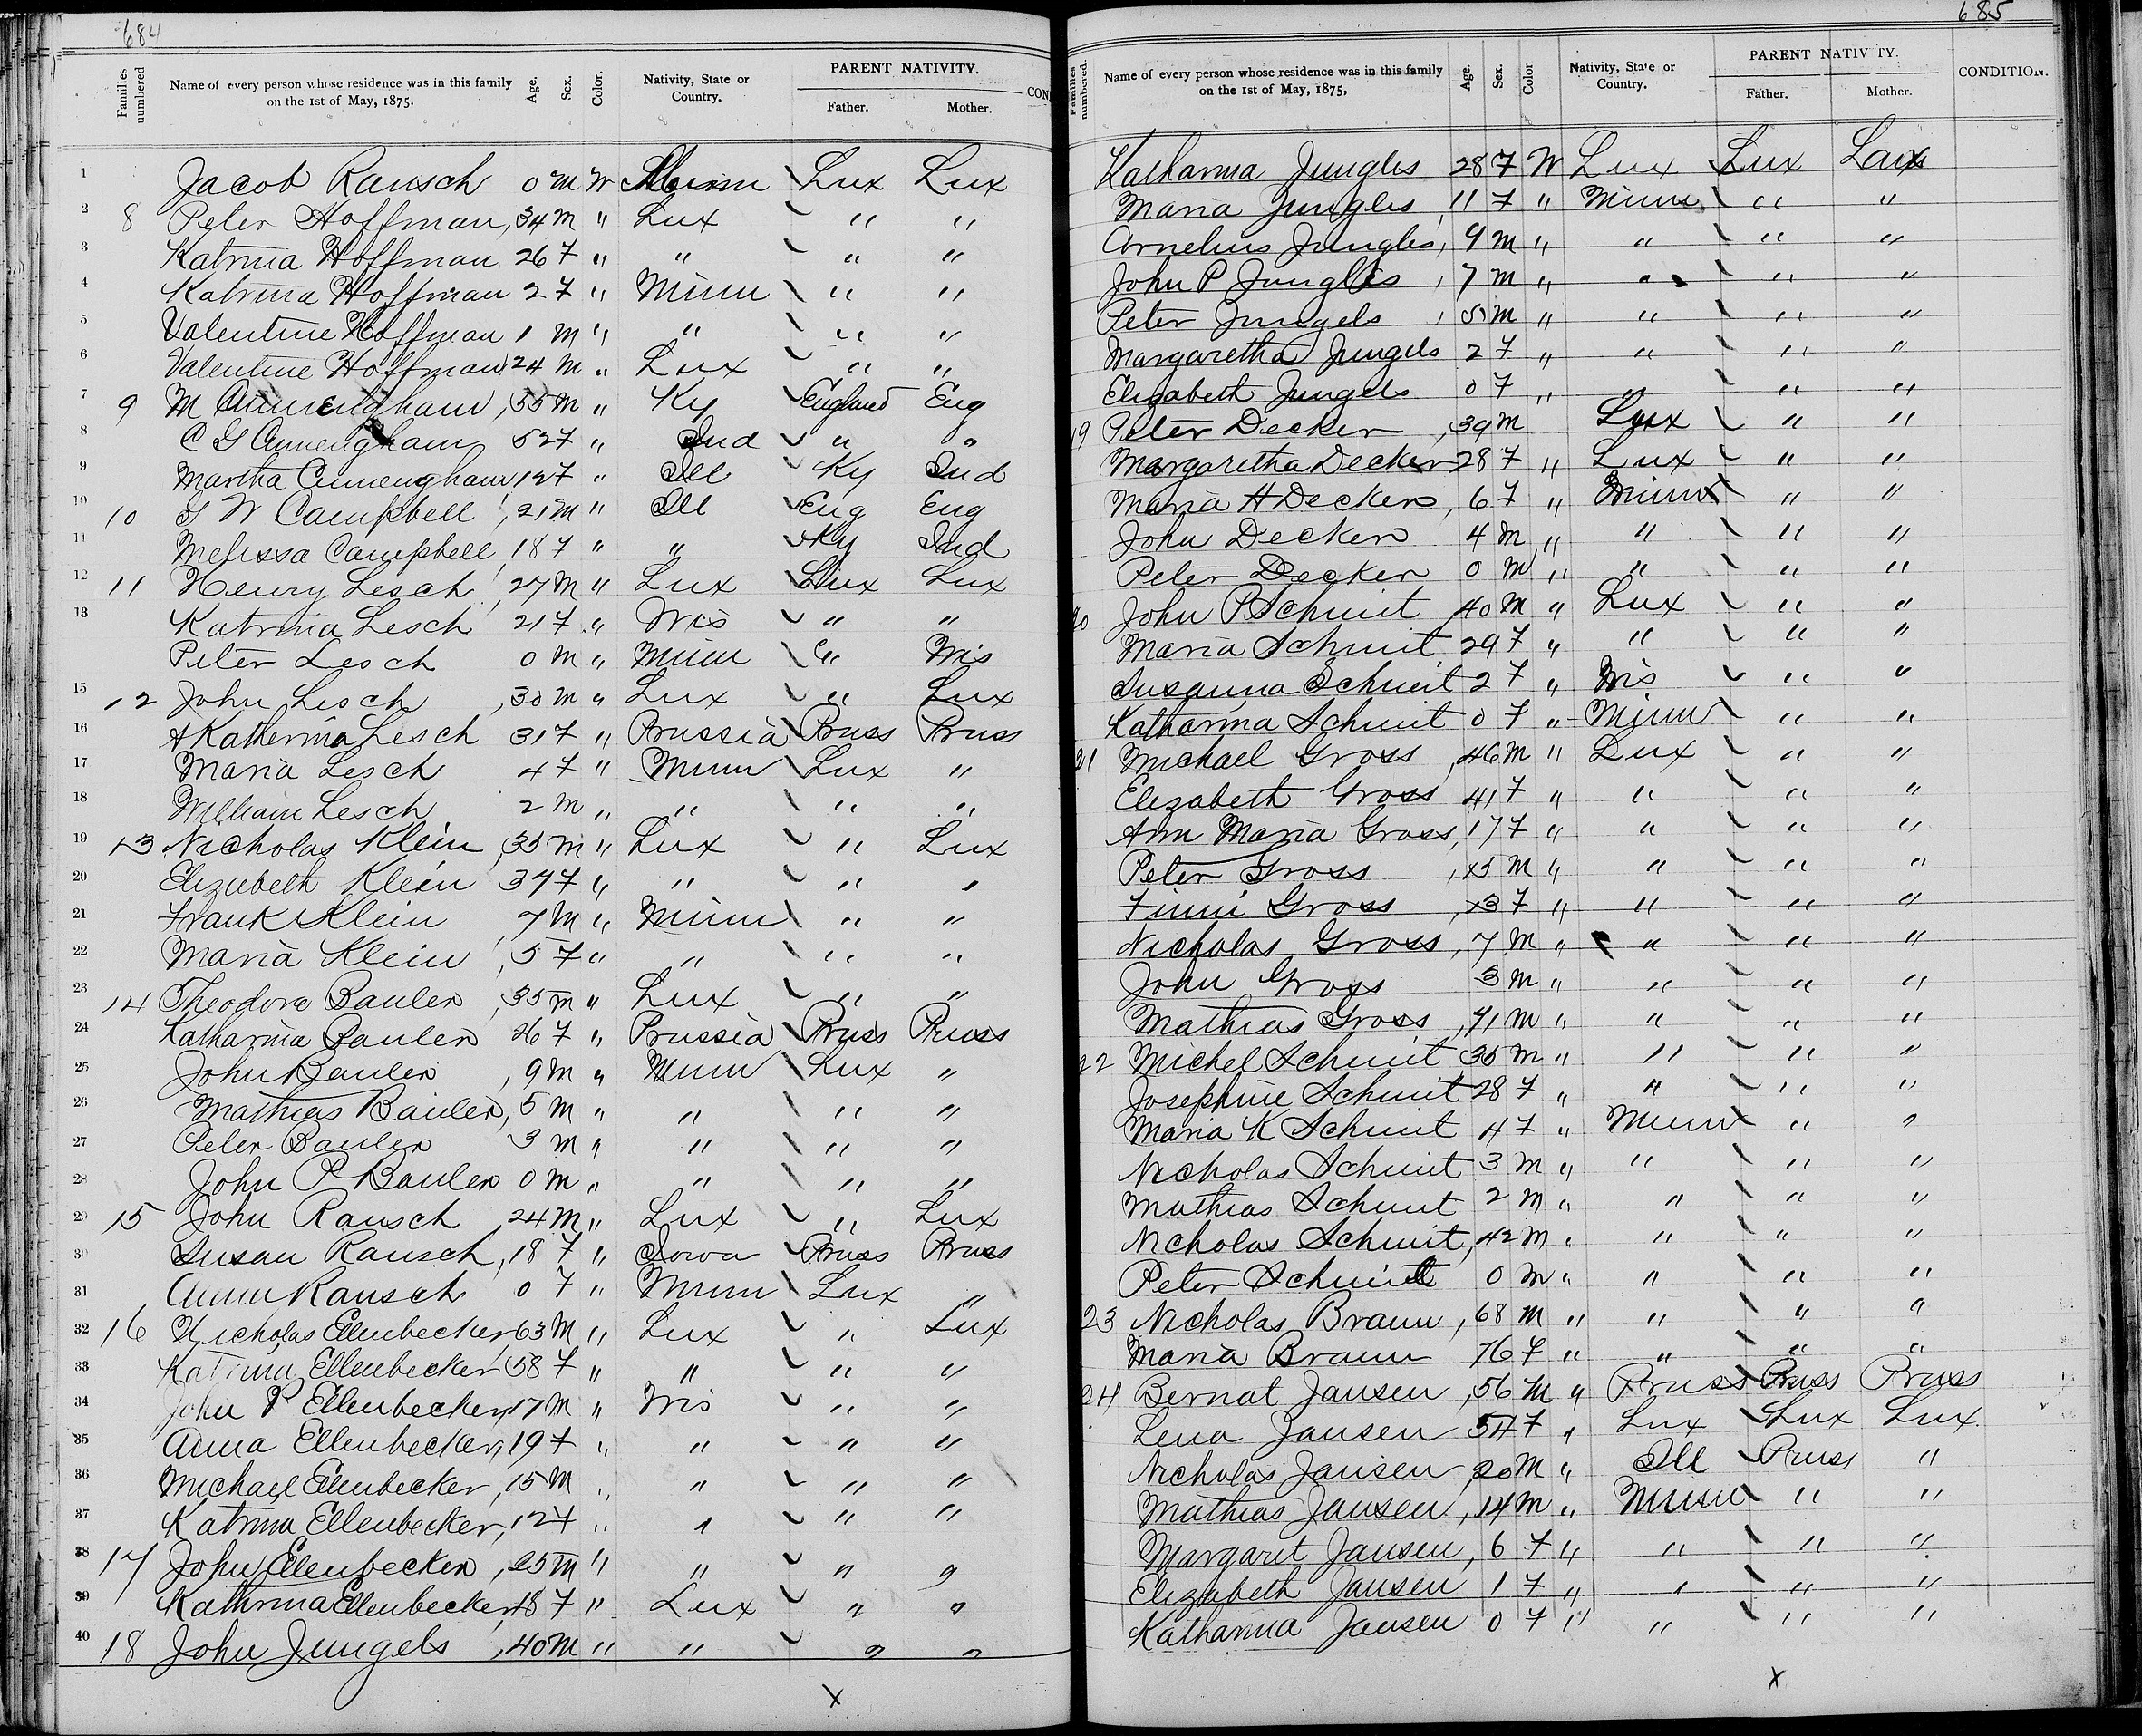 684
Families numbered
Name of every person whose residence was in this family on the 1st of May, 1875.
Age. Sex. Color.
Nativity, State or Country.
PARENT NATIVITY.
Father. Mother.
CON
1 Jacob Rausch 0 M W Minn Lux Lux
2 8 Peter Hoffman, 34 M " Lux " "
3 Katrina Hoffman 26 F " " " "
4 Katrina Hoffman 2 F " Minn " "
5 Valentine Hoffman 1 M " " " "
6 Valentine Hoffman 24 M " Lux " "
7 9 M Cunnengham, 55 M " Ky England Eng
8 C G Cunnengham 52 F " Ind " "
9 Martha Cunnengham 12 F " Ill Ky Ind
10 10 G W Campbell, 21 M " Ill Eng Eng
11 Melissa Campbell, 18 F " " Ky Ind
12 11 Henry Lesch, 27 M " Lux Lux Lux
13 Katrina Lesch 21 F " Wis " "
Peter Lesch 0 M " Minn " Wis
15 12 John Lesch, 30 M " Lux " Lux
16 A Katherina Lesch 31 F " Prussia Pruss Pruss
17 Maria Lesch 4 F " Minn Lux "
18 William Lesch 2 M " " " "
19 13 Nicholas Klein, 35 M " Lux " Lux
20 Elizabeth Klein 39 F " " " "
21 Frank Klein, 7 M " Minn " "
22 Maria Klein, 5 F " " " "
23 14 Theodore Bauler, 35 M " Lux " "
24 Katharina Bauler 26 F " Prussia Pruss Pruss
25 John Bauler, 9 M " Minn Lux "
26 Mathias Bauler, 5 M " " " "
27 Peter Bauler 3 M " " " "
28 John P Bauler 0 M " " " "
29 15 John Rausch, 24 M " Lux " Lux
30 Susan Rausch, 18 F " Iowa Pruss Pruss
31 Annn Rausch 0 F " Minn Lux "
32 16 Nicholas Ellenbecker 63 M " Lux " Lux
33 Katrina Ellenbecker 58 F " " " "
34 John P Ellenbecker, 17 M " Wis " "
35 Anna Ellenbecker, 19 F " " " "
36 Michael Ellenbecker, 15 M " " " "
37 Katrina Ellenbecker, 12 F " " " "
38 17 John Ellenbecker, 25 M " " " "
39 Kathrina Ellenbecker, 18 F " Lux " "
40 18 John Jungels, 40 M " " " "
X
685
Families numbered.
Name of every person whose residence was in this family on the 1st of May, 1875,
Age. Sex. Color
Nativity, State or Country.
PARENT NATIVITY.
Father. Mother.
CONDITION.
Katharina Jungles 28 F W Lux Lux Lux
Maria Jungles, 11 F " Minn " "
Cornelius Jungles, 9 M " " " "
John P Jungles, 7 M " " " "
Peter Jungels, 5 M " " " "
Margaretha Jungels 2 F " " " "
Elizabeth Jungels 0 F " " " "
19 Peter Decker, 39 M Lux " "
Margaretha Decker 28 F " Lux " "
Maria A Decker, 6 F " Minn " "
John Decker 4 M " " " "
Peter Decker 0 M " " " "
20 John P Schmit 40 M " Lux " "
Maria Schmit 29 F " " " "
Susanna Schmit 2 F " Wis " "
Katharina Schmit 0 F " Minn " "
21 Michael Gross, 46 M " Lux " "
Elizabeth Gross 41 F " " " "
Ann Maria Gross, 17 F " " " "
Peter Gross, 15 M " " " "
Finni Gross, 13 F " " " "
Nicholas Gross, 7 M " " " "
John Gross 3 M " " " "
Mathias Gross, 71 M " " " "
22 Michel Schmit 35 M " " " "
Josephine Schmit 28 F " " " "
Maria K Schmit 4 F " Minn " "
Nicholas Schmit 3 M " " " "
Mathias Schmit 2 M " " " "
Nicholas Schmit, 42 M " " " "
Peter Schmit 0 M " " " "
23 Nicholas Braun, 68 M " " " "
Maria Braun 76 F " " " "
24 Bernat Jansen, 56 M " Pruss Pruss Pruss
Lena Jansen 54 F " Lux Lux Lux
Nicholas Jansen, 20 M " Ill Pruss "
Mathias Jansen, 14 M " Minn " "
Margarit Jansen, 6 F " " " "
Elizabeth Jansen 1 F " " " "
Katharina Jansen 0 F " " " "
X